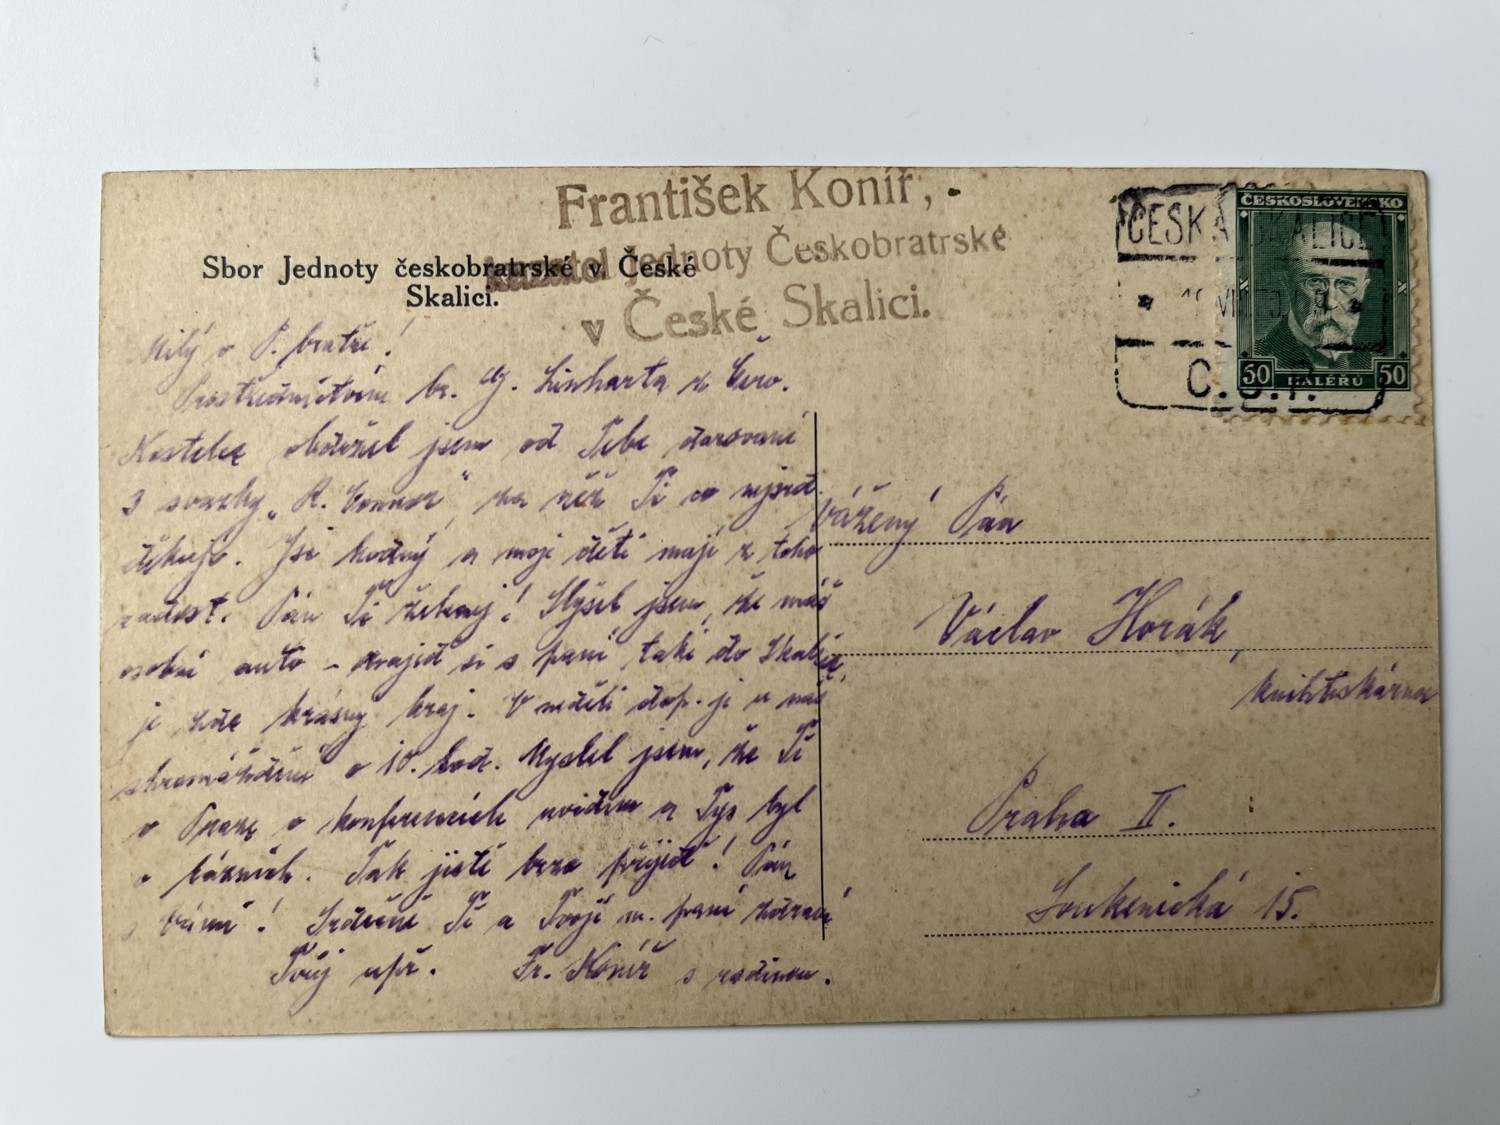 František Koníř,
kazatel Jednoty Českobratrské
v České Skalici.
Sbor Jednoty českobratrské v České
Skalici.
ČESKÁ SKALICE
Č.S.R.
ČESKOSLOVENSKO
50 HALÉRŮ 50
Milý v P. bratře!
Prostřednictvím br. Linharta z Červ.
Kostelce obdržel jsem od Tebe darované
3 svazky „R. Connor", za něž Ti co nejsrd.
děkuji. Jsi hodný a moje děti mají z toho
radost. Pán Ti žehnej! Slyšel jsem, že máš
osobní auto – zajeď si s paní také do Skalice,
je zde krásný kraj. V neděli dop. je u nás
shromáždění v 10. hod. Myslel jsem, že Tě
v Praze o konferencích uvidím a Tys byl
v lázních. Tak jistě brzo přijeď! Pán
s Vámi! Srdečně Tě a Tvojí m. paní zdraví
Tvůj upř. Fr. Koníř s rodinou.
Vážený Pán
Václav Horák,
knihtiskárna
Praha II.
Soukenická 15.